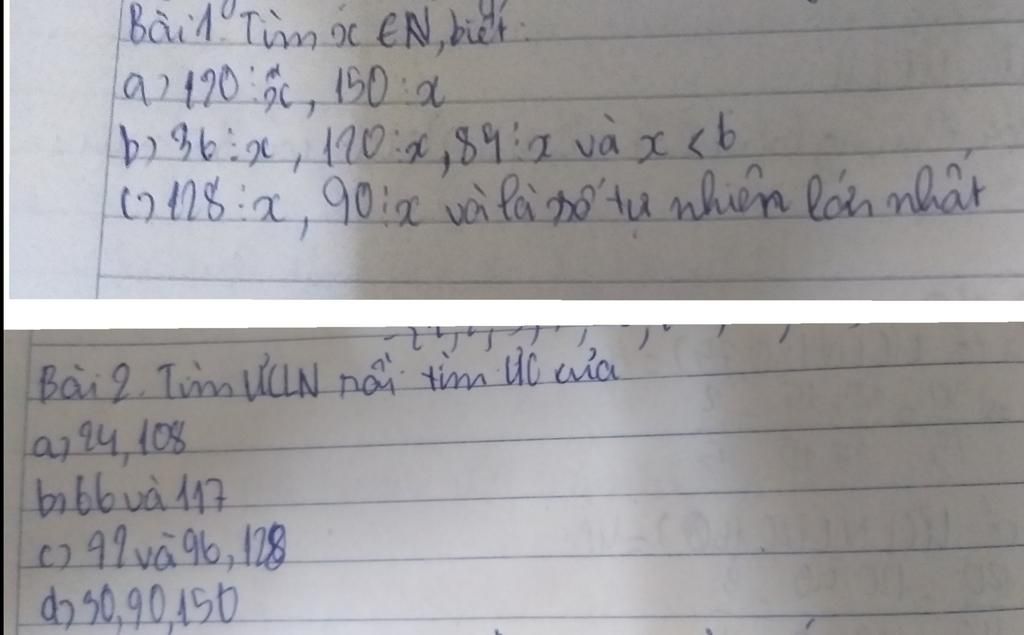 Bài 1. Tìm x ∈ N, biết:
a) 120 ⋮ x, 150 ⋮ x
b) 36 ⋮ x, 120 ⋮ x, 84 ⋮ x và x < 6
c) 128 ⋮ x, 90 ⋮ x và là số tự nhiên lớn nhất
Bài 2. Tìm ƯCLN rồi tìm ƯC của
a) 24, 108
b) 66 và 117
c) 92 và 96, 128
d) 30, 90, 150